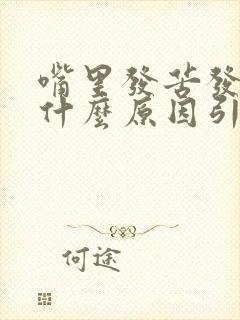 嘴里發苦發
什麼原因引
何途